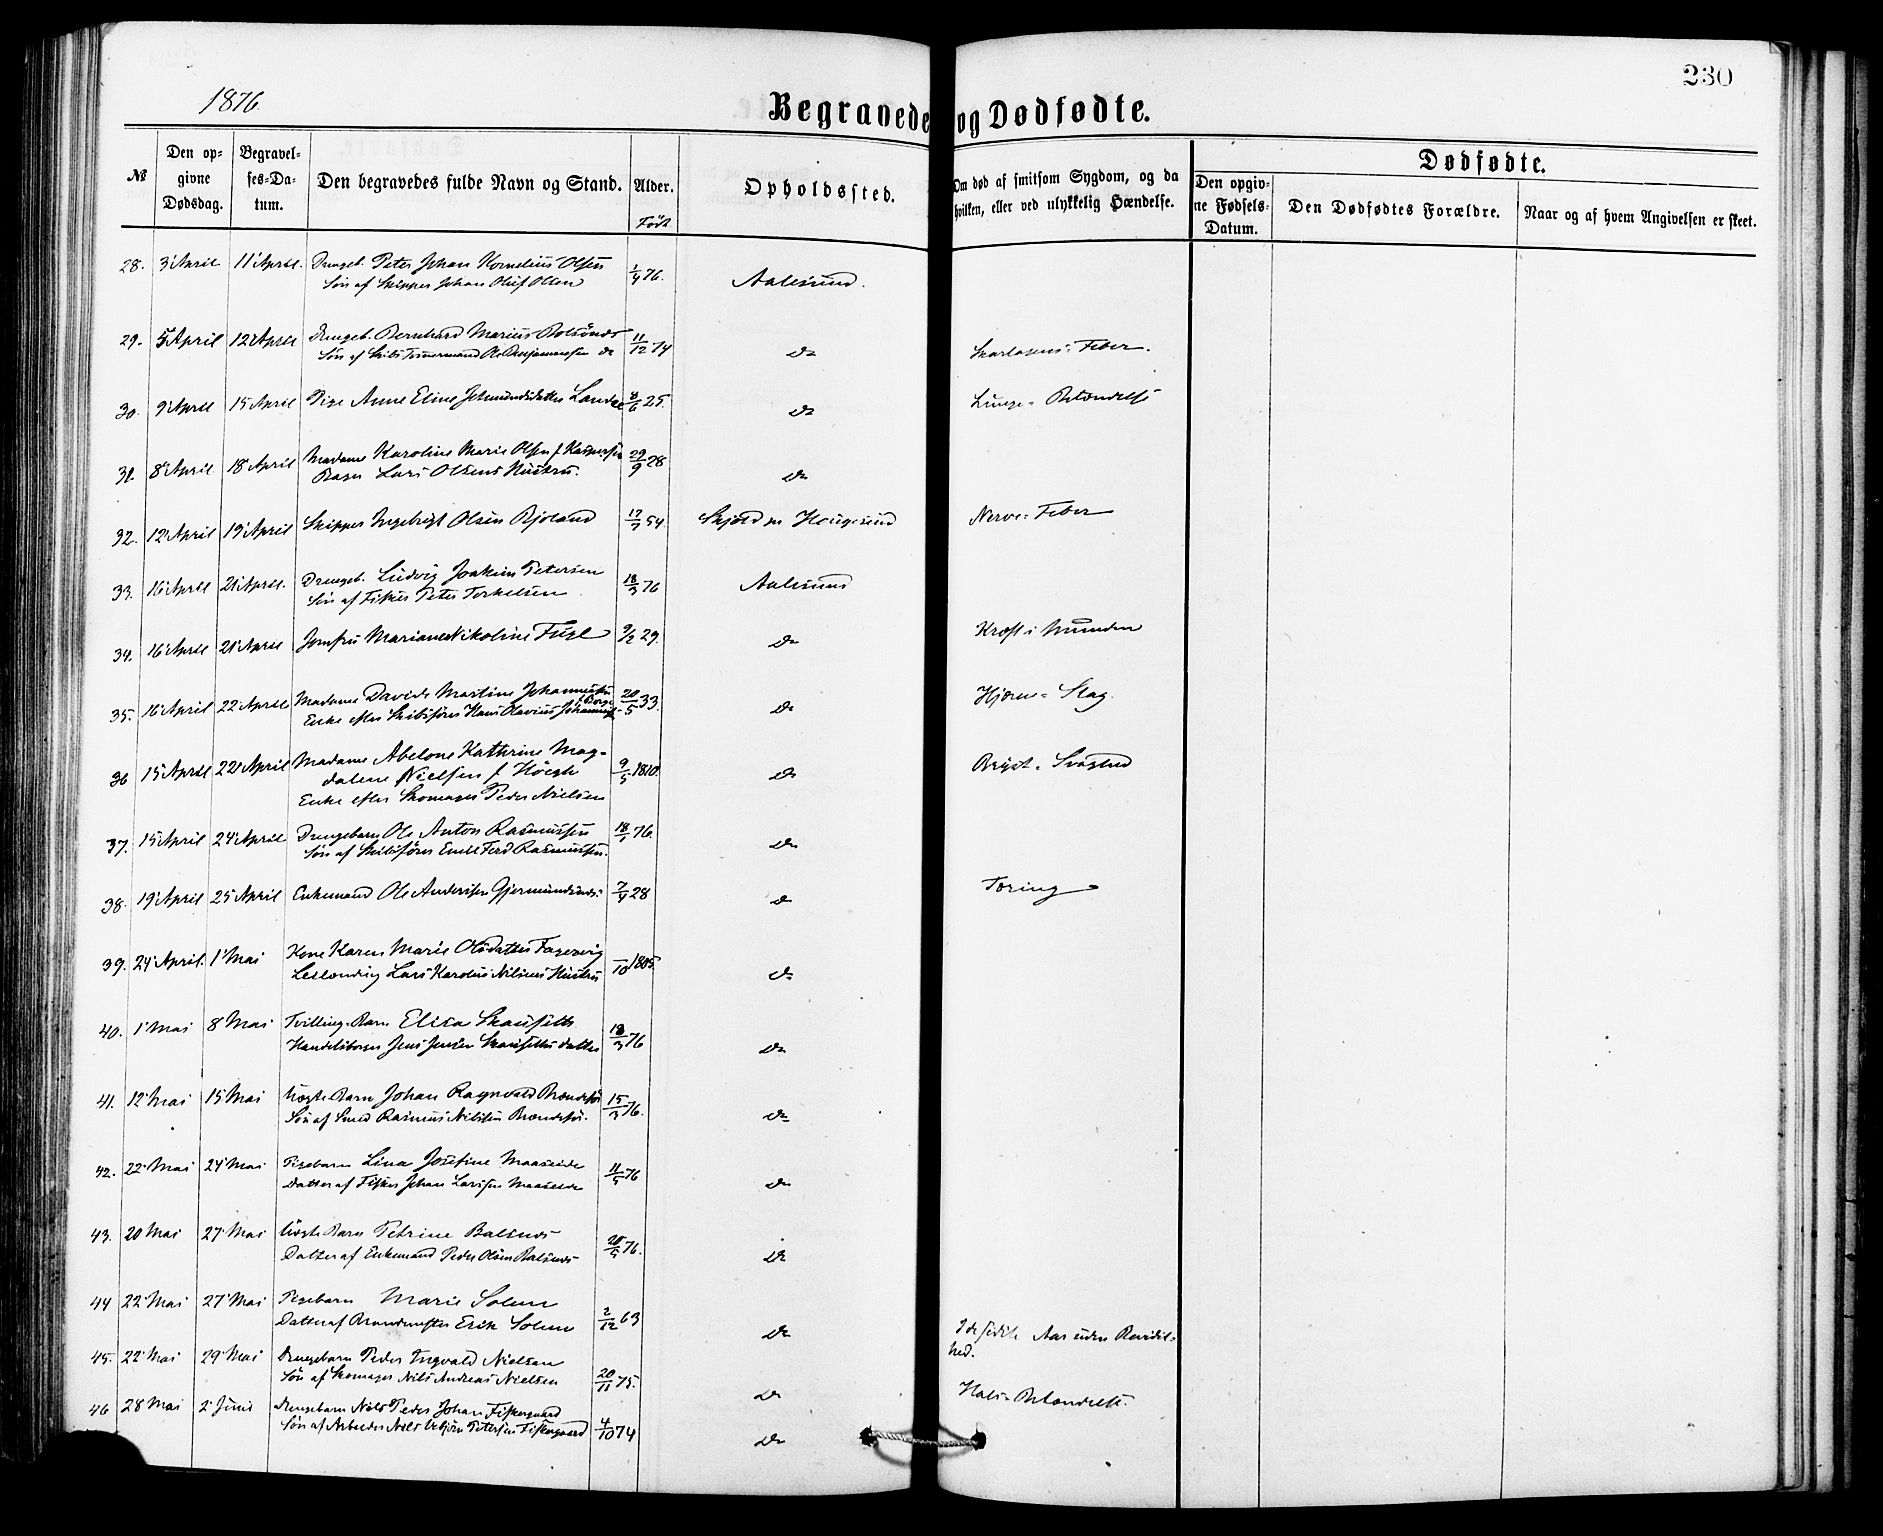 1876
230
Begravede og Dødfødte.
№
Den op-
givne
Dødsdag.
Begravel-
ses-Da-
tum.
Den begravedes fulde Navn og Stand.
Alder.
Født
Opholdssted.
Om død af smitsom Sygdom, og da
hvilken, eller ved ulykkelig Hændelse.
Dødfødte.
Den opgiv-
ne Fødsels-
Datum.
Den Dødfødtes Forældre.
Naar og af hvem Angivelsen er skeet.
28. 3 April 11 April. Drengeb. Peter Johan Kornelius Olsen 1/4 76. Aalesund.
Søn af Skipper Johan Oluf Olsen
29. 5 April 12 April Drengeb. Bernhard Marius Bolsønes 11/12 74 Do Skarlagens-Feber.
Søn af Skibs Tømmermand Ole Benjaminsen do
30. 9 April 15 April Pige Anne Eline Johnundsdatter 8/6 25. Do Lunge-Betændelse
31. 8 April 18 April Madame Karoline Marie Olsen f. Kaspersen 29/9 28 Do
Lars Olsens Hustru.
32. 12 April 19 April Skipper Ingebrigt Olsen Bjoland 17/7 54. Skjold pr Haugesund Nerve-Feber
33. 16 April 21 April. Drengeb. Ludvig Joakim Petersen 18/3 76 Aalesund
Søn af Fisker Peter Torkelsen
34. 16 April 21 April Jomfru Mariane Nikoline Fugl 9/2 29. Do Kræft i Munden
35. 16 April 22 April Madame Davide Martine Johannesen 20/5 33. Do Hjerne-Slag.
Enke efter Skibsfører Hans Olavius Johannesen
36 15 April 22 April Madame Abelone Kathrine Mag- 9/5 1810. Do Bryst-Svaghed
dalene Nielsen f. Høegh
Enke efter Skomager Peder Nielsen
37. 15 April 24 April Drengebarn Ole Anton Rasmussen 76. Do
Søn af Skibsfører Emil Ferd Rasmussen.
38. 19 April 25 April Enkemand Ole Andersen Gjermundsnes 7/4 28 Do Tæring
39. 24 April. 1 Mai Kone Karen Marie Olsdatter Fagervig /10 1805. Do
Lars Karolus Nilsens Hustru
40. 1 Mai 8 Mai Tvilling-Barn Elisa Skouseth 18/3 76 Do
Handelsborger Jens Jensen Skouseths datter
41. 12 Mai 15 Mai Uægte Barn Johan Ragnvald 15/3 76. Do
Søn af Smed Rasmus Nilsen
42. 22 Mai 24 Mai Pigebarn Lina Josefine Maaseide 11/5 76 Do
Datter af Fisker Johan Larssen Maaseide
43. 20 Mai 27 Mai Uægte Barn Petrine Balsnes 76. Do
Datter af Enkemand Peder Olsen Balsnes
44 22 Mai 27 Mai Pigebarn Marie Solem 2/12 63 Do
Datter af Brandmester Erik Solem
I de sidste Aar uden Bevidst-
hed.
45. 22 Mai 29 Mai Drengebarn Peder Ingvald Nielsen 20/11 75. Do
Søn af Skomager Nils Andreas Nielsen
Hals-Betændelse.
46 28 Mai 2 Juni Drengebarn Nils Peder Johan Fiskergaard 4/10 74 Do
Søn af Arbeider Nils Petersen Fiskergaard